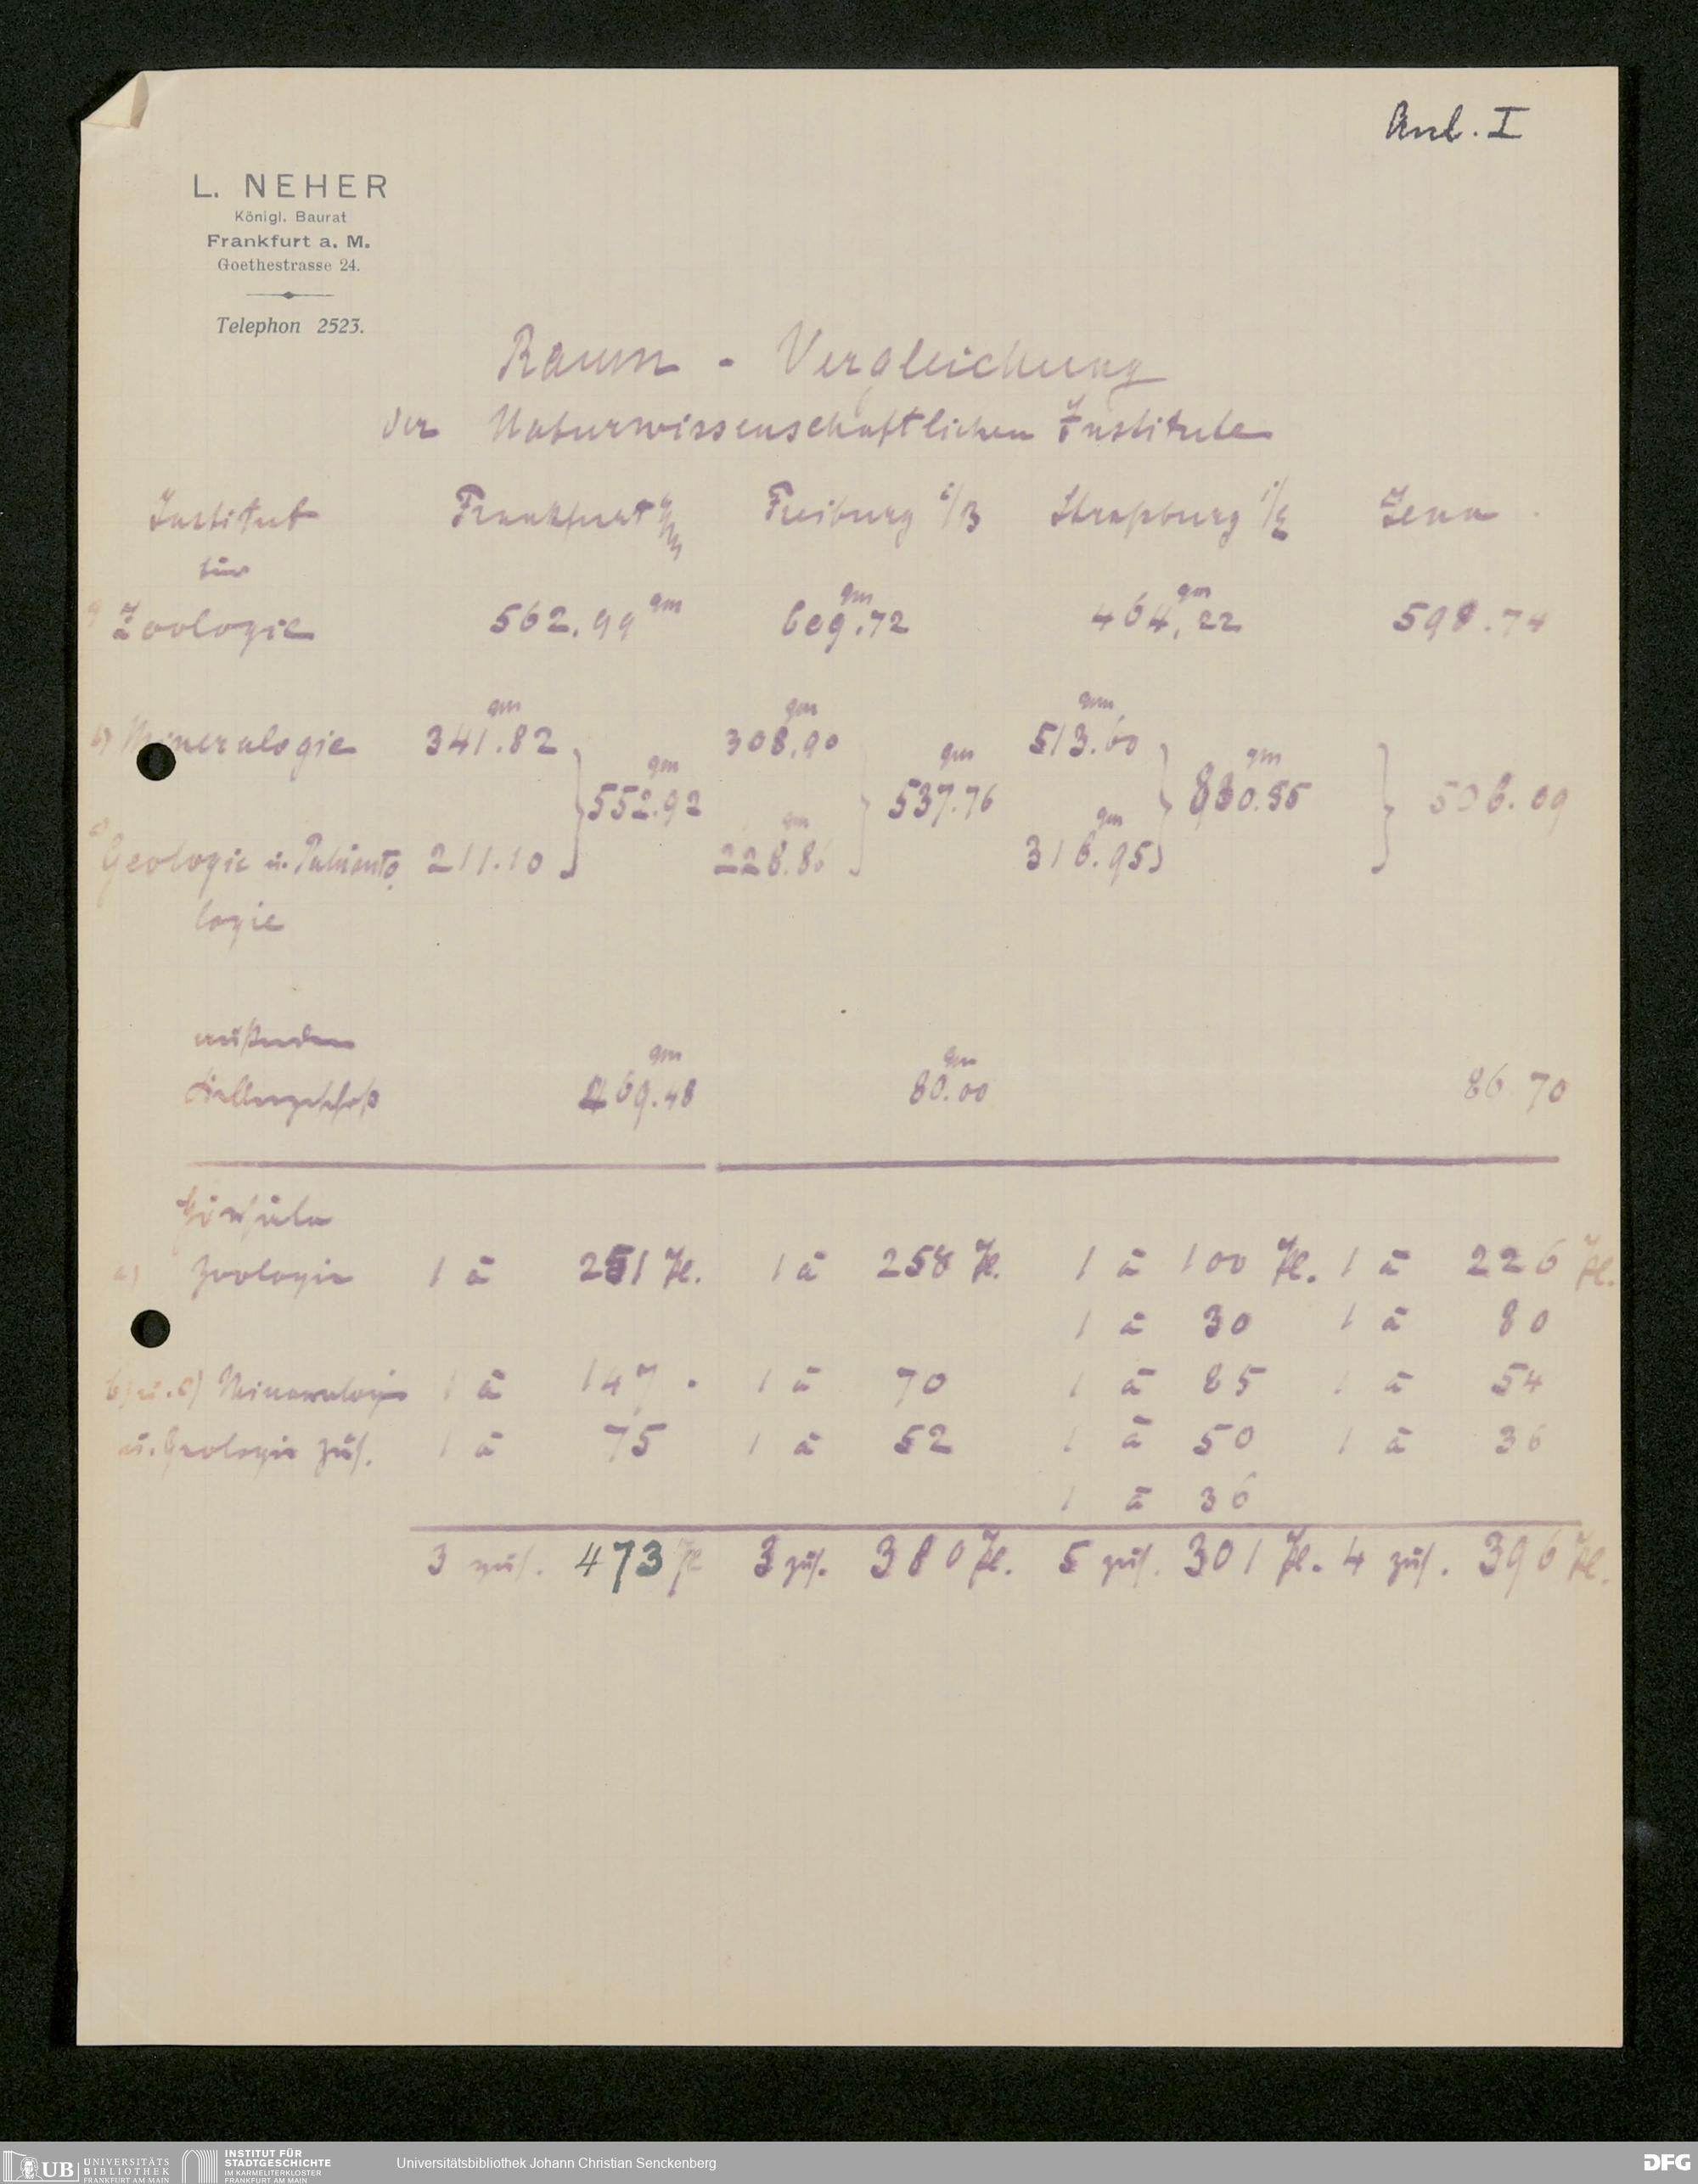 Anl. I
L. NEHER
Königl. Baurat
Frankfurt a. M.
Goethestrasse 24.
Telephon 2523.
Raum - Vergleichung
der Naturwissenschaftlichen Institute
Institut Frankfurt a/M Freiburg i/B Straßburg i/E Jena
für
a) Zoologie 562.99 qm 609.72 qm 464,22 qm 598.74
b) Mineralogie 341.82 qm 308,90 qm 513.60 qm
552.92 qm 537.76 qm 830.55 qm 506.09
c) Geologie u. Paläonto 211.10 228.86 qm 316.95 qm
logie
außerdem
Kellergeschoß 269.48 qm 80.00 qm 86 70
Hörsäle
a) Zoologie 1 à 251 Pl. 1 à 258 Pl. 1 à 100 Pl. 1 à 226 Pl.
1 à 30 1 à 80
b) u. c) Mineralogie 1 à 147 . 1 à 70 1 à 85 1 à 54
u. Geologie zus. 1 à 75 1 à 52 1 à 50 1 à 36
1 à 36
3 zus. 473 Pl 3 zus. 380 Pl. 5 zus. 301 Pl. 4 zus. 396 Pl.
UB UNIVERSITÄTS
BIBLIOTHEK
FRANKFURT AM MAIN
INSTITUT FÜR
STADTGESCHICHTE
IM KARMELITERKLOSTER
FRANKFURT AM MAIN
Universitätsbibliothek Johann Christian Senckenberg
DFG